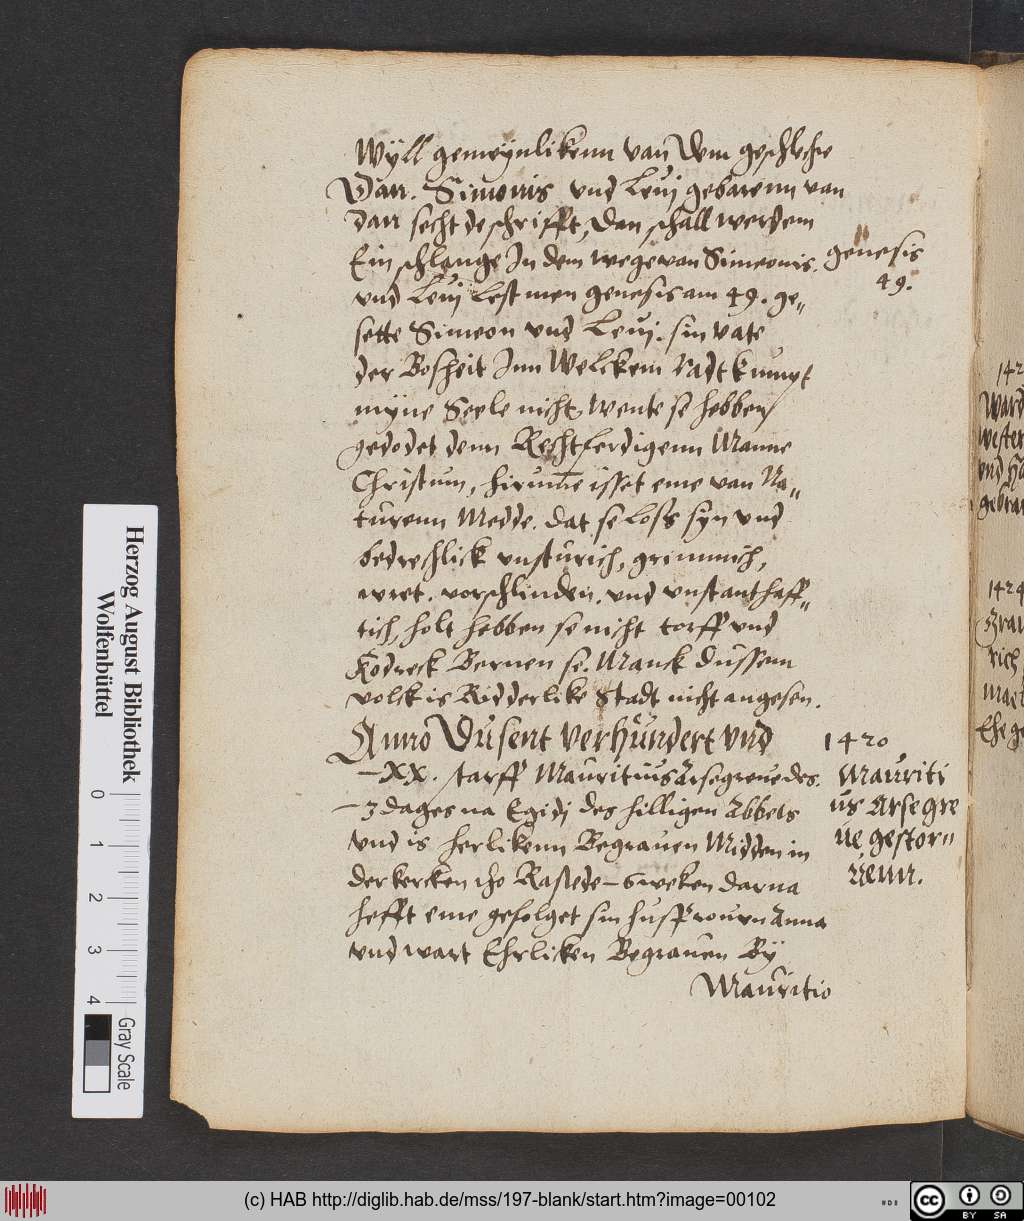 Wÿll gemeÿnlikenn van Dem geschlechte
Dan. Simonis vnd Leuj gebarenn van
Dan secht de schrifft, Dan schall werdem
Ein schlange In dem wege van Simeonis.
genesis
49.
vnd Leuj lest men genesis am 49. ge„
sette Simeon vnd Leuj. sin vate
der Bosheit Inn Welckem radt kumpt
mÿne Seele nicht, wente se hebben
gedodet denn Rechtferdigenn Manne
Christum, hirumme isset eme van Na„
turenn Medde. dat se loss syn vnd
bedrechlick vnsturich, grimmich,
wret. vorschlinden. vnd vnstanthaff„
tich, holt hebben se nicht torff vnd
Kodreck Bernen se. Manck dussem
volck is Ridderlike Stadt nicht angesen.
Anno Dusent verhundert vnd
1420
–XX. starff Mauritius Arsegreue des.
Mauriti
us Arsegre
ue gestor„
uenn.
–3 dages na Egidj des hilligen Abbets
vnd is herlikenn Begrauen Midden in
der kercken tho Rastede – 6 weken darna
hefft eme gefolget sin husfrouwn Anna
vnd wart Ehrliken Begrauen Bÿ
Mauritio
142
Ward
wester
vnd
1424
Graue
rich
Ehe ge
Herzog August Bibliothek
Wolfenbüttel
0 1 2 3 4
Gray Scale
(c) HAB http://diglib.hab.de/mss/197-blank/start.htm?image=00102
cc BY SA